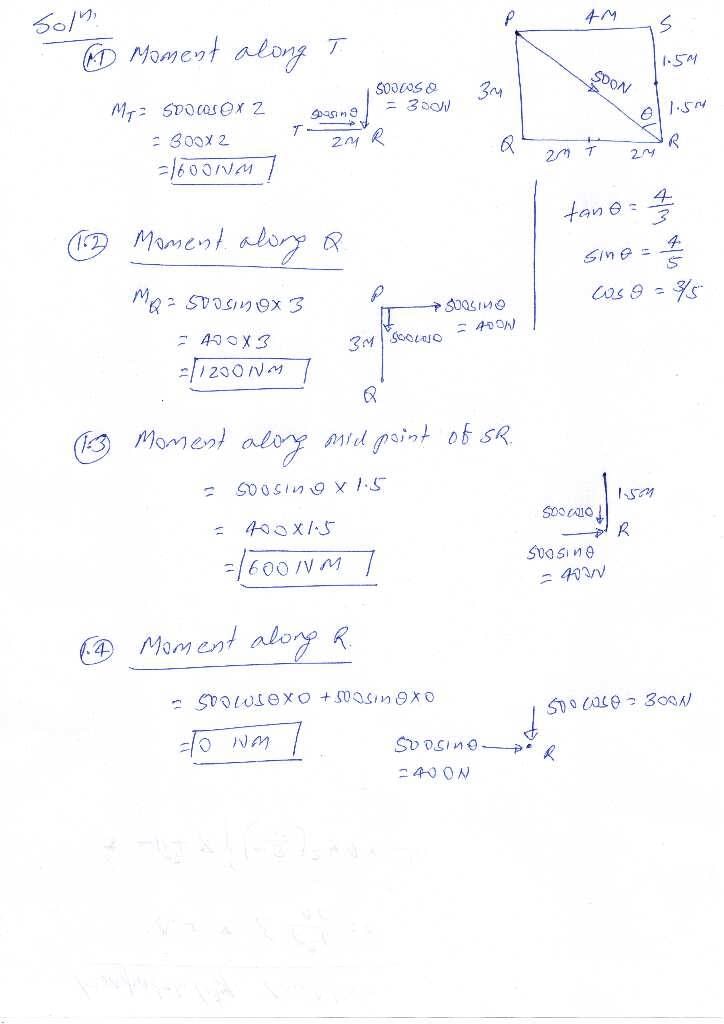 Solⁿ.
1.1 Moment along T
M_T = 500cosθ x 2
= 300 x 2
= 600 NM
500sinθ
500cosθ
= 300N
T
2M
R
P
4M
S
1.5M
500N
3M
1.5M
θ
Q
2M
T
2M
R
tan θ = 4/3
sin θ = 4/5
cos θ = 3/5
1.2 Moment along Q
M_Q = 500sinθ x 3
= 400 x 3
= 1200 NM
P
500sinθ
= 400N
500cosθ
3M
Q
1.3 Moment along mid point of SR.
= 500sinθ x 1.5
= 400 x 1.5
= 600 NM
1.5M
500cosθ
R
500sinθ
= 400N
1.4 Moment along R.
= 500cosθ x 0 + 500sinθ x 0
= 0 NM
500cosθ = 300N
500sinθ
= 400N
R